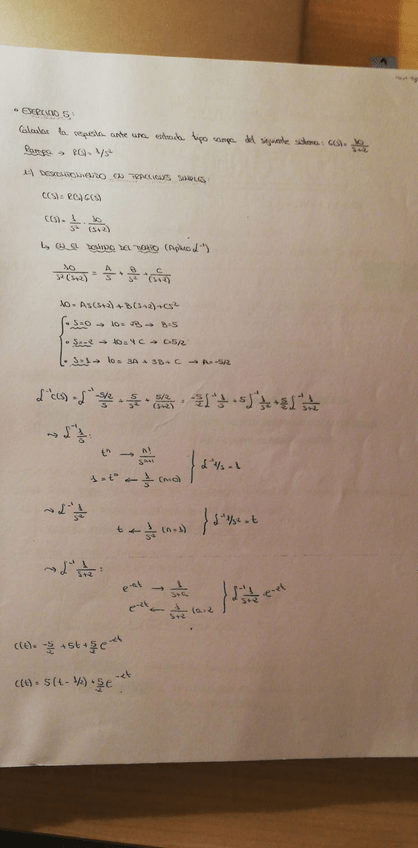 • EJERCICIO 5:
Calcular la respuesta ante una entrada tipo rampa del siguiente sistema: G(s) = 10/(s+2)
Rampa → R(s) = 1/s²
1º) DESCOMPONEMOS EN FRACCIONES SIMPLES:
C(s) = R(s)·G(s)
C(s) = 1/s² · 10/(s+2)
↳ EN EL DOMINIO DEL TIEMPO (Aplico L⁻¹)
10/(s²(s+2)) = A/s + B/s² + C/(s+2)
10 = AS(s+2) + B(s+2) + Cs²
• s=0 → 10 = 2B → B=5
• s=-2 → 10 = 4C → C=5/2
• s=1 → 10 = 3A + 3B + C → A=-5/2
L⁻¹ C(s) = L⁻¹ -5/2/s + 5/s² + 5/2/(s+2) = -5/2 L⁻¹ 1/s + 5 L⁻¹ 1/s² + 5/2 L⁻¹ 1/(s+2)
⇝ L⁻¹ 1/s :
tⁿ → n!/sⁿ⁺¹
1 = t⁰ ← 1/s (n=0) } L⁻¹ 1/s = 1
⇝ L⁻¹ 1/s²
t ← 1/s² (n=1) } L⁻¹ 1/s² = t
⇝ L⁻¹ 1/(s+2) :
e^-at → 1/(s+a)
e^-2t ← 1/(s+2) (a=2 } L⁻¹ 1/(s+2) = e^-2t
C(t) = -5/2 + 5t + 5/2 e^-2t
C(t) = 5(t - 1/2) + 5/2 e^-2t